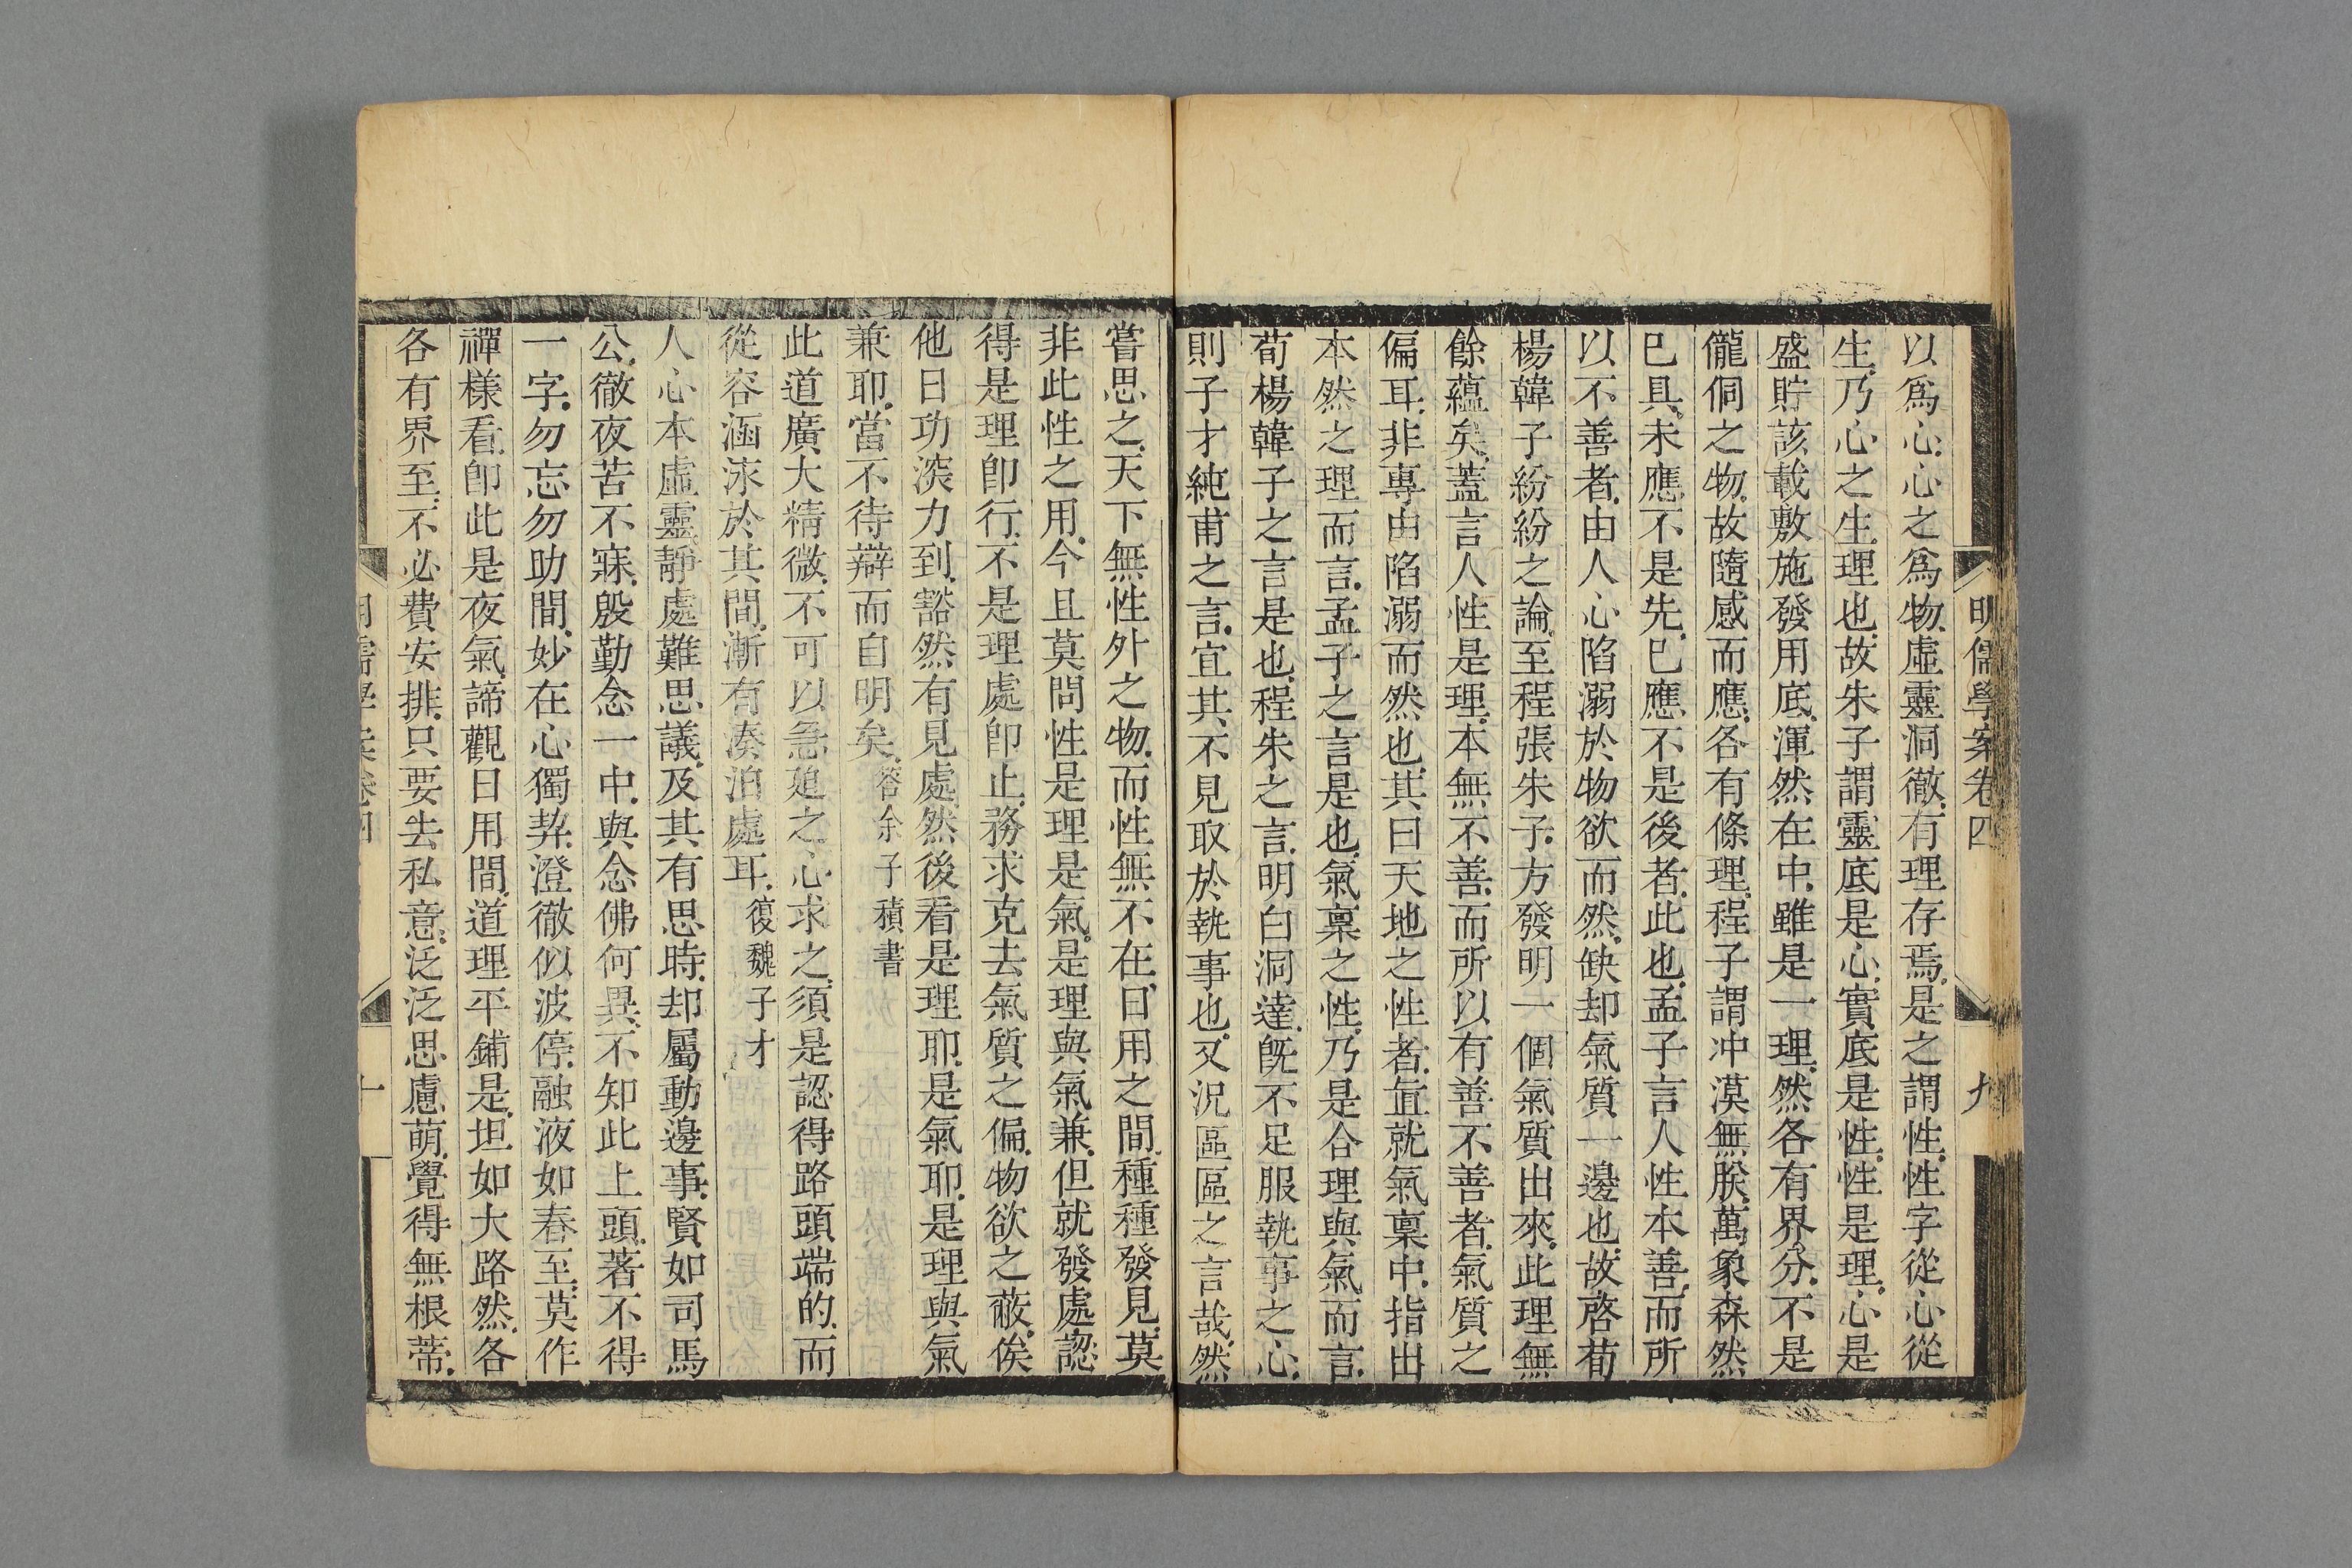 明儒學案卷四 九
以爲心心之爲物虛靈洞徹有理存焉是之謂性性字從心從
生乃心之生理也故朱子謂靈底是心實底是性性是理心是
盛貯該載敷施發用底渾然在中雖是一理然各有界分不是
儱侗之物故隨感而應各有條理程子謂冲漠無朕萬象森然
已具未應不是先已應不是後者此也孟子言人性本善而所
以不善者由人心陷溺於物欲而然缺却氣質一邊也故啓荀
楊韓子紛紛之論至程張朱子方發明一個氣質出來此理無
餘蘊矣蓋言人性是理本無不善而所以有善不善者氣質之
偏耳非專由陷溺而然也其曰天地之性者直就氣稟中指出
本然之理而言孟子之言是也氣稟之性乃是合理與氣而言
荀楊韓子之言是也程朱之言明白洞達旣不足服執事之心
則子才純甫之言宜其不見取於執事也又況區區之言哉然
嘗思之天下無性外之物而性無不在日用之間種種發見莫
非此性之用今且莫問性是理是氣是理與氣兼但就發處認
得是理卽行不是理處卽止務求克去氣質之偏物欲之蔽俟
他日功深力到豁然有見處然後看是理耶是氣耶是理與氣
兼耶當不待辯而自明矣答余子積書
此道廣大精微不可以急廹之心求之須是認得路頭端的而
從容涵泳於其間漸有湊泊處耳復魏子才
人心本虛靈靜處難思議及其有思時却屬動邊事賢如司馬
公徹夜苦不寐殷勤念一中與念佛何異不知此上頭著不得
一字勿忘勿助間妙在心獨契澄徹似波停融液如春至莫作
禪樣看卽此是夜氣諦觀日用間道理平鋪是坦如大路然各
各有界至不必費安排只要去私意泛泛思慮萌覺得無根蒂
明儒學案卷四 十